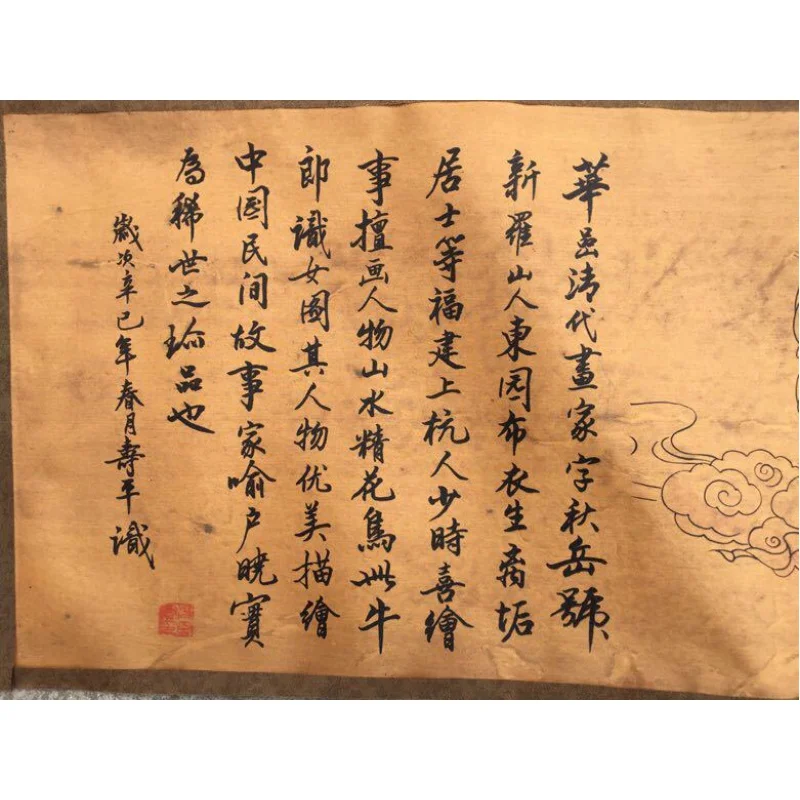 華嵒清代畫家字秋岳號
新羅山人東园布衣生离垢
居士等福建上杭人少時喜繪
事擅画人物山水精花鳥此牛
郎識女图其人物优美描繪
中國民间故事家喻户曉實
為稀世之珎品也
歲次辛巳年春月壽平識